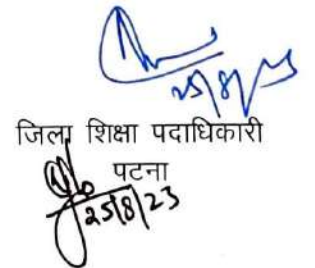 25/8/23
जिला शिक्षा पदाधिकारी
पटना
25/8/23